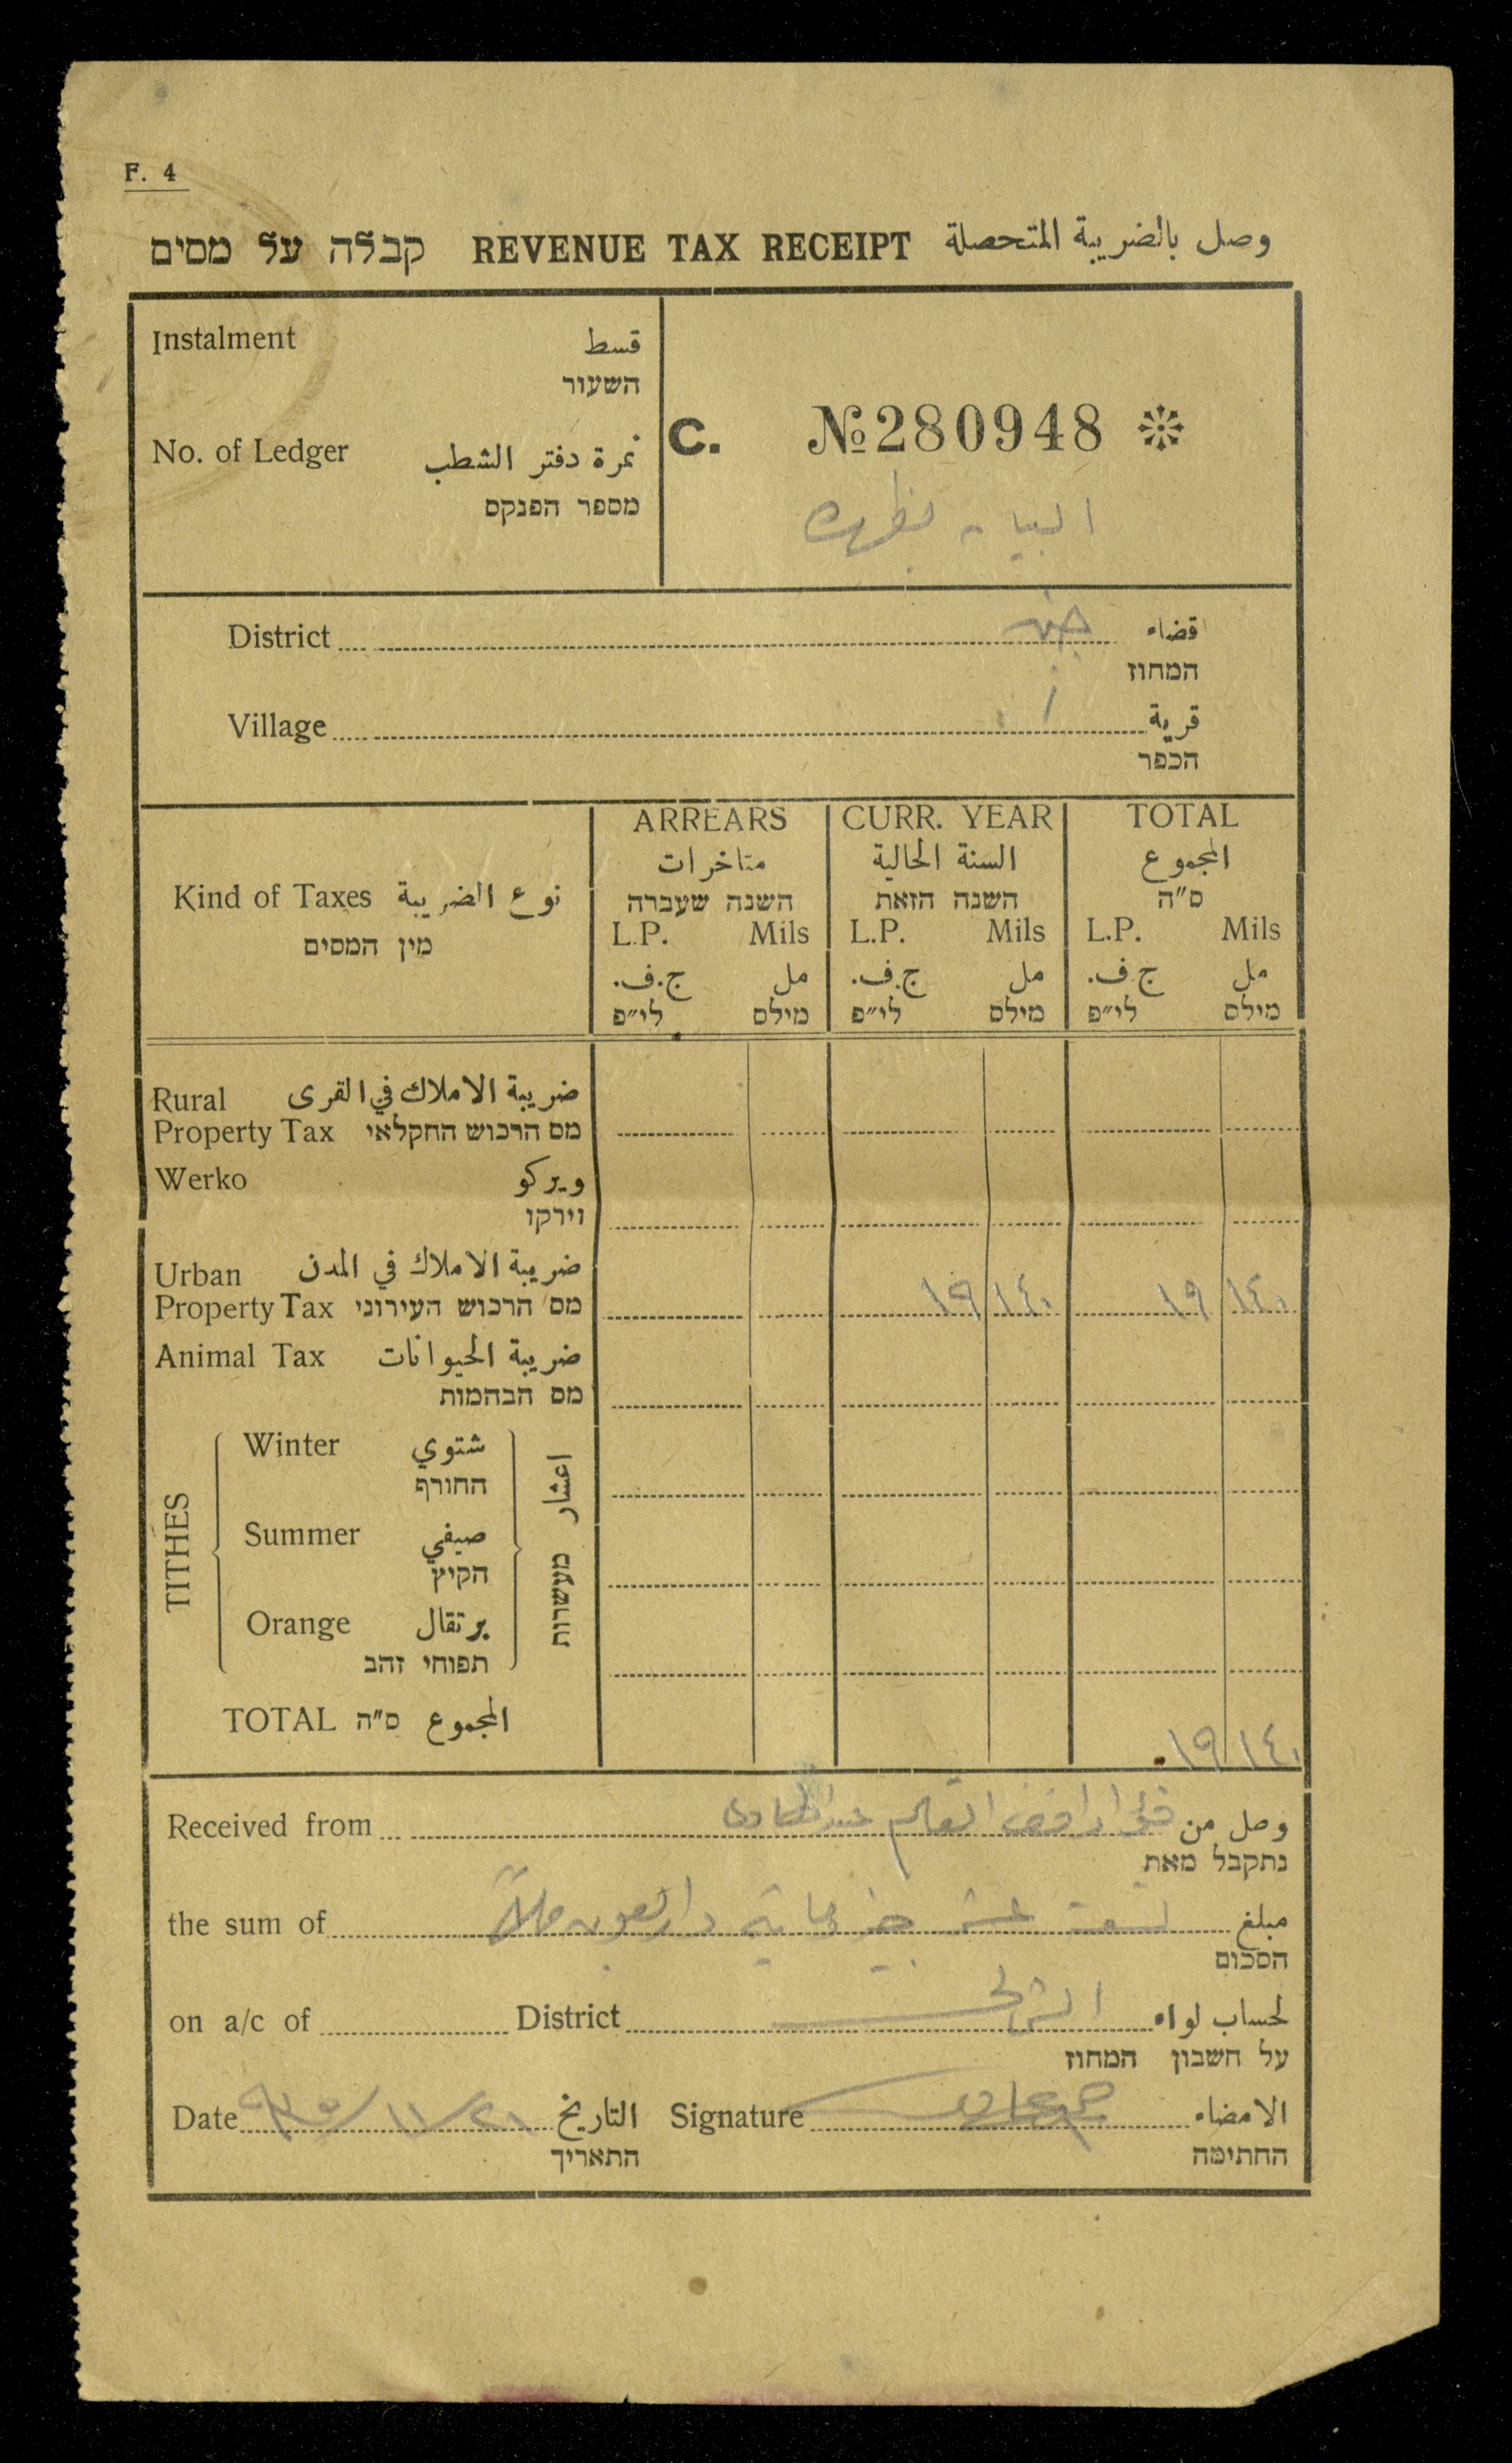 F. 4
קבלה על מסים REVENUE TAX RECEIPT وصل بالضريبة المتحصلة
Instalment قسط
השעור
No. of Ledger نمرة دفتر الشطب
מספר הפנקס
C. №280948
البيان بظهره
District جنين قضاء
המחוז
Village قرية
הכפר
Kind of Taxes نوع الضريبة
מין המסים
ARREARS CURR. YEAR TOTAL
متاخرات السنة الحالية المجموع
השנה שעברה השנה הזאת ס״ה
L.P. Mils L.P. Mils L.P. Mils
ج.ف. مل ج.ف. مل ج.ف. مل
לי״פ מילס לי״פ מילס לי״פ מילס
Rural ضريبة الاملاك في القرى
Property Tax מס הרכוש החקלאי
Werko ويركو
וירקו
Urban ضريبة الاملاك في المدن
Property Tax מס הרכוש העירוני ١٩ ١٤٠ ١٩ ١٤٠
Animal Tax ضريبة الحيوانات
מס הבהמות
TITHES اعشار מעשרות
Winter شتوي
החורף
Summer صيفي
הקיץ
Orange برتقال
תפוחי זהב
TOTAL ס״ה المجموع ١٩ ١٤٠
Received from عبد الهادي وصل من
נתקבל מאת
the sum of تسعة عشر جنيه ماية واربعون ملاً مبلغ
הסכום
on a/c of District لحساب لواء
על חשבון המחוז
Date ٩٣٥/١١/٢١ التاريخ Signature الامضاء
התאריך החתימה